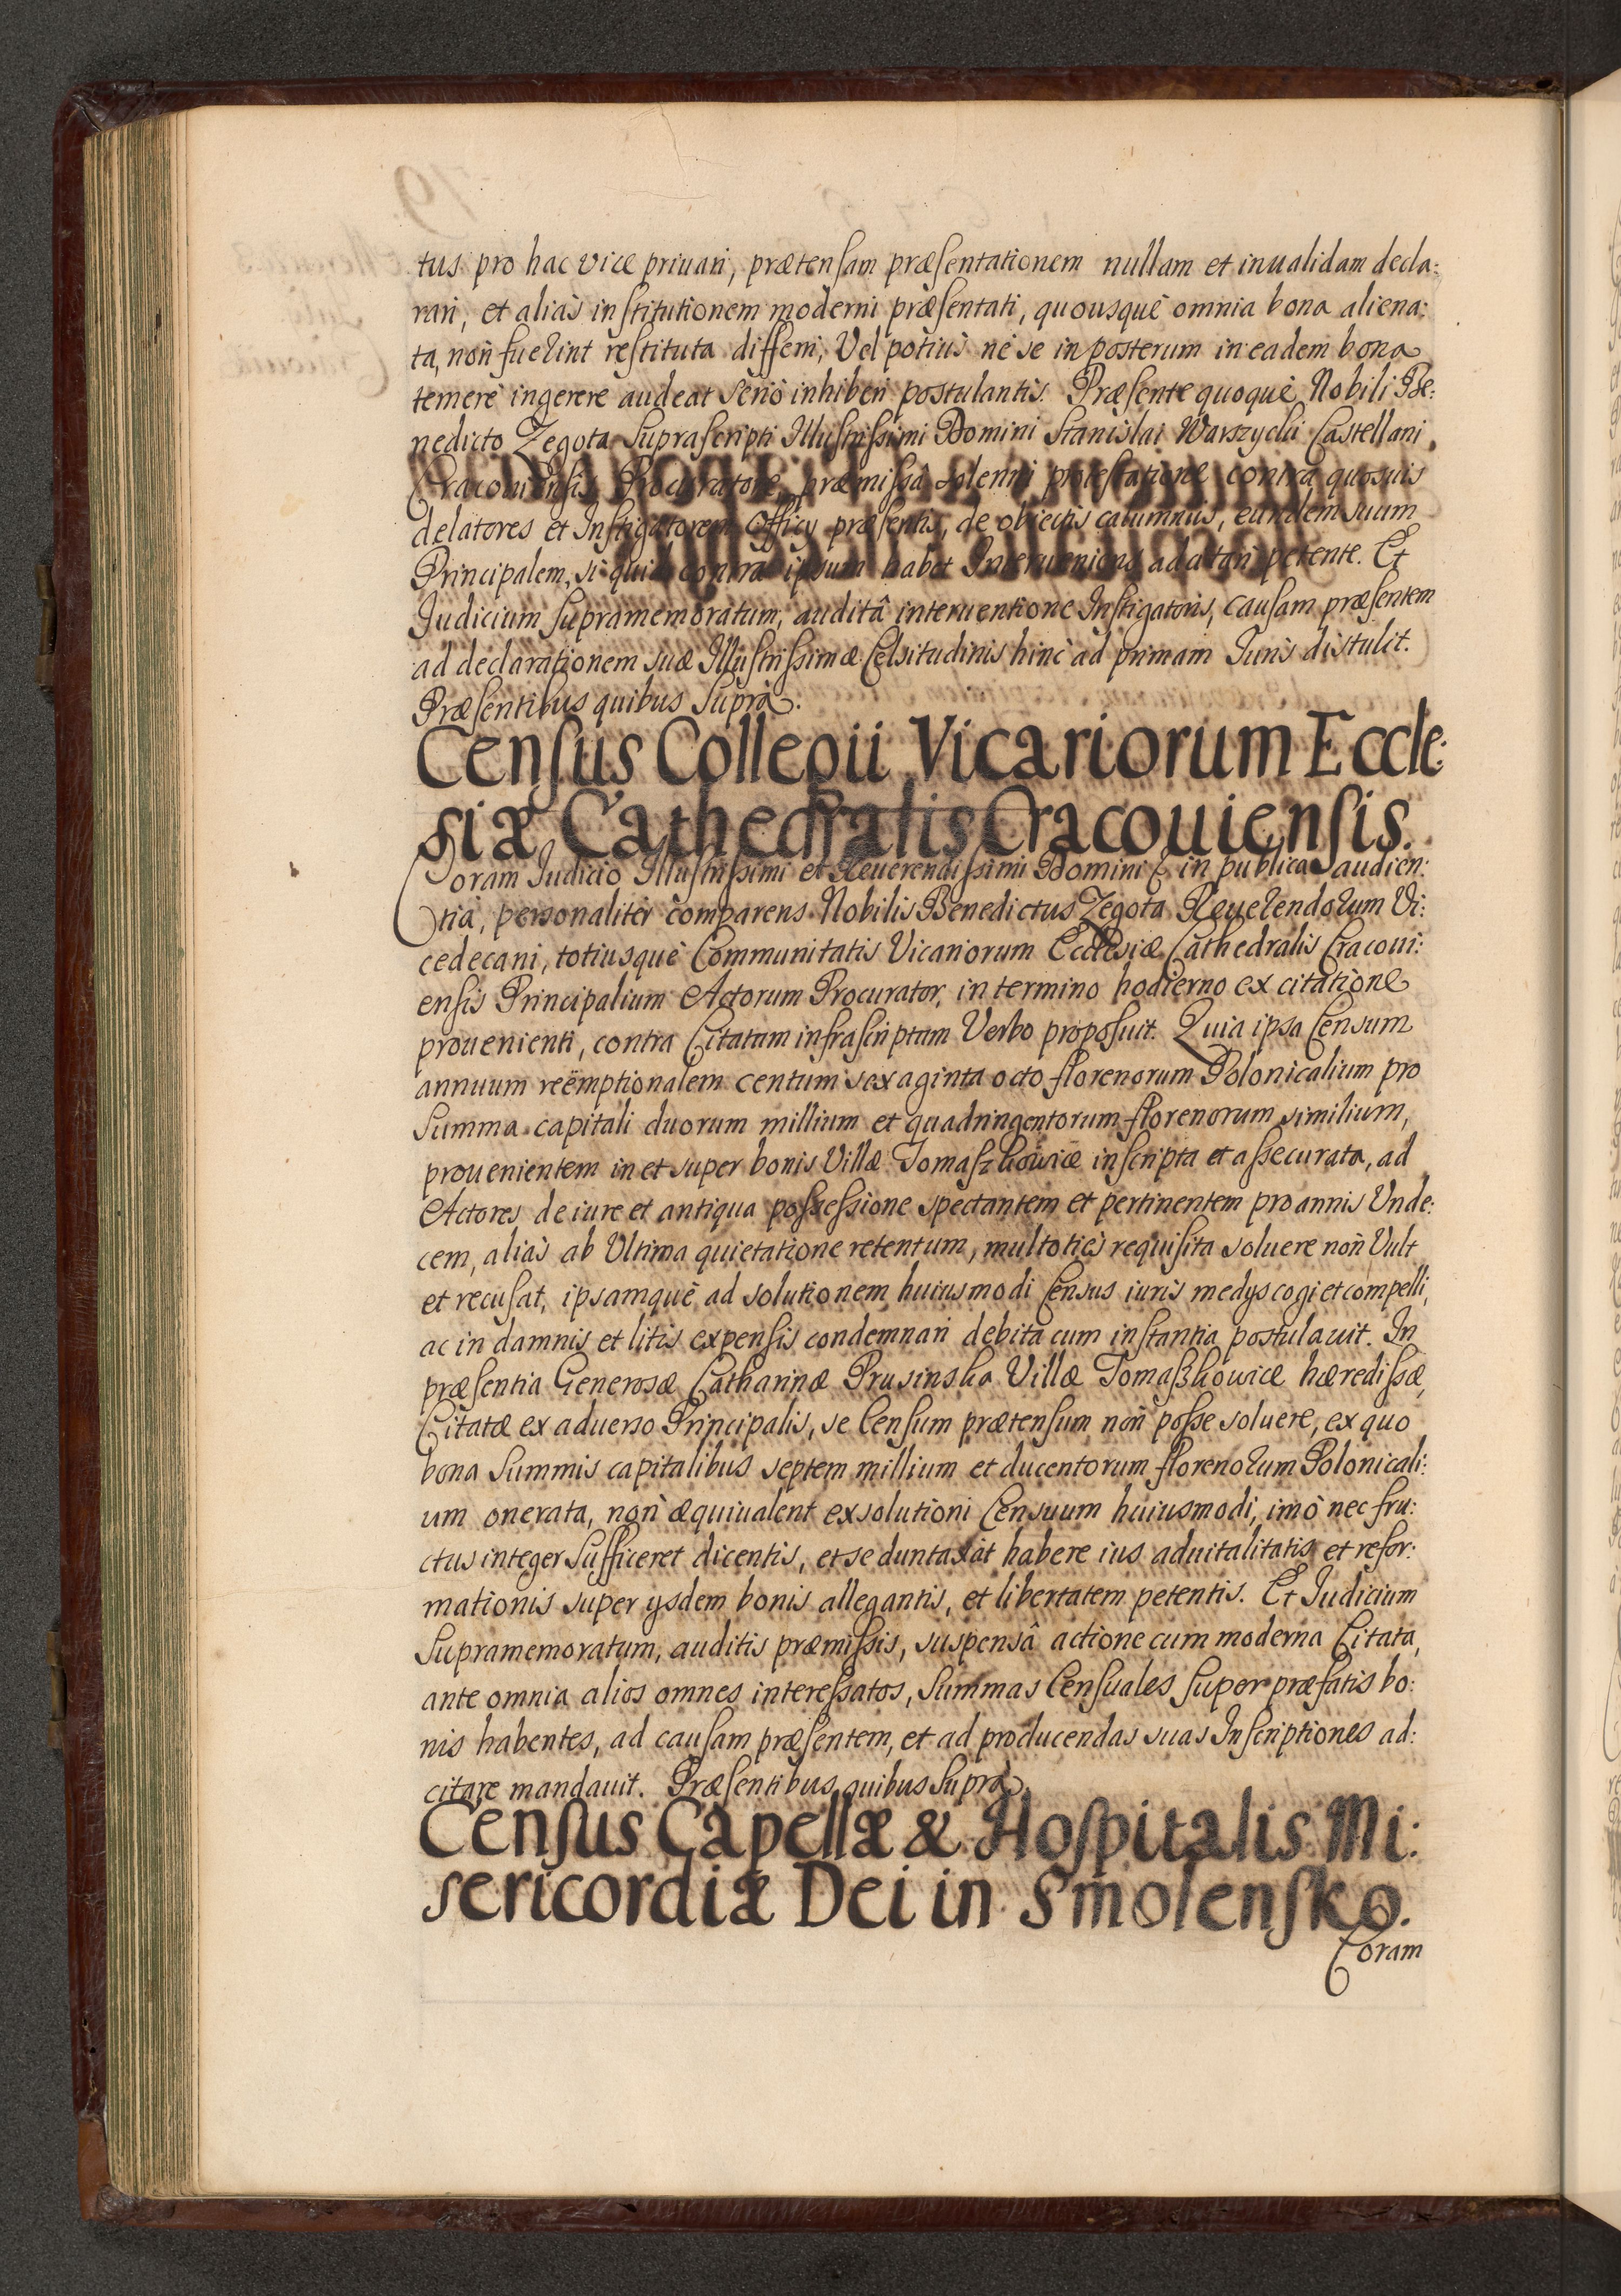 tus pro hac vice priuari, prætenſam præſentationem nullam et inualidam decla:
rari, et aliàs inſtitutionem moderni præſentati, quousquè omnia bona aliena:
ta, non fuerint reſtituta differri, Vel potius nè se in posterum in eadem bona
temerè ingerere audeat seriò inhiberi postulantis. Præſente quoquè Nobili Be:
nedicto Zegota Supraſcripti Illuſtriſsimi Domini Stanislai Warszycki Castellani
Cracouienſis Procuratore, præmiſsâ solenni proteſtatione contra quosuis
delatores et Inſtigatorem Officij præſentis, de obiectis calumnijs, eundem suum
Principalem, si quid contra ipsum habet Interueniens adcitari petente. Et
Judicium Supramemoratum, auditâ interuentione Inſtigatoris, causam præſentem
ad declarationem suæ Illuſtriſsimæ Celsitudinis hinc ad primam Juris distulit.
Præſentibus quibus Suprà.
Cenſus Collegii Vicariorum Eccle:
siæ Cathedralis Cracouienſis.
Coram Judicio Illuſtriſsimi et Reuerendiſsimi Domini & in publica audien:
tia, personalitèr comparens Nobilis Benedictus Zegota Reuerendorum Vi:
cedecani, totiusquè Communitatis Vicariorum Ecclesiæ Cathedralis Cracoui:
ensis Principalium Actorum Procurator, in termino hodierno ex citatione
prouenienti, contra Citatam infraſcriptam Verbo propoſuit. Quia ipsa Censum
annuum reëmptionalem centum sexaginta octo florenorum Polonicalium pro
Summa capitali duorum millium et quadringentorum florenorum similium,
prouenientem in et super bonis Villæ Tomaſzkowicæ inſcripta et aſsecurata, ad
Actores de iure et antiqua poſseſsione spectantem et pertinentem pro annis Unde:
cem, aliàs ab Ultima quietatione retentum, multoties requiſita soluere non Vult
et recuſat, ipsamquè ad solutionem huiusmodi Census iuris medijs cogi et compelli,
ac in damnis et litis expenſis condemnari debita cum inſtantia postulauit. In
præſentia Generosæ Catharinæ Prusinska Villæ Tomaßkowicæ hærediſsæ,
Citatæ ex aduerso Principalis, se Censum prætenſum non poſse soluere, ex quo
bona Summis capitalibus septem millium et ducentorum florenorum Polonicali:
um onerata, non æquiualent exsolutioni Censuum huiusmodi, imò nec fru:
ctus integer Sufficeret dicentis, et se duntaxat habere ius aduitalitatis et refor:
mationis super ijsdem bonis allegantis, et libertatem petentis. Et Judicium
Supramemoratum, auditis præmiſsis, suspensâ actione cum moderna Citata,
ante omnia alios omnes intereſsatos, Summas Cenſuales Super præfatis bo:
nis habentes, ad cauſam præſentem, et ad producendas suas Inſcriptiones ad:
citare mandauit. Præſentibus quibus Suprà.
Cenſus Capellæ & Hoſpitalis Mi:
sericordiæ Dei in Smolenſko.
Coram